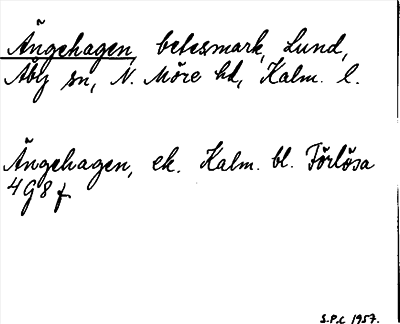 Ängehagen, betesmark, Lund,
Åby sn, N. Möre hd, Kalm. l.
Ängehagen, ek. Kalm. bl. Förlösa
4G8f
S.P.C 1957.